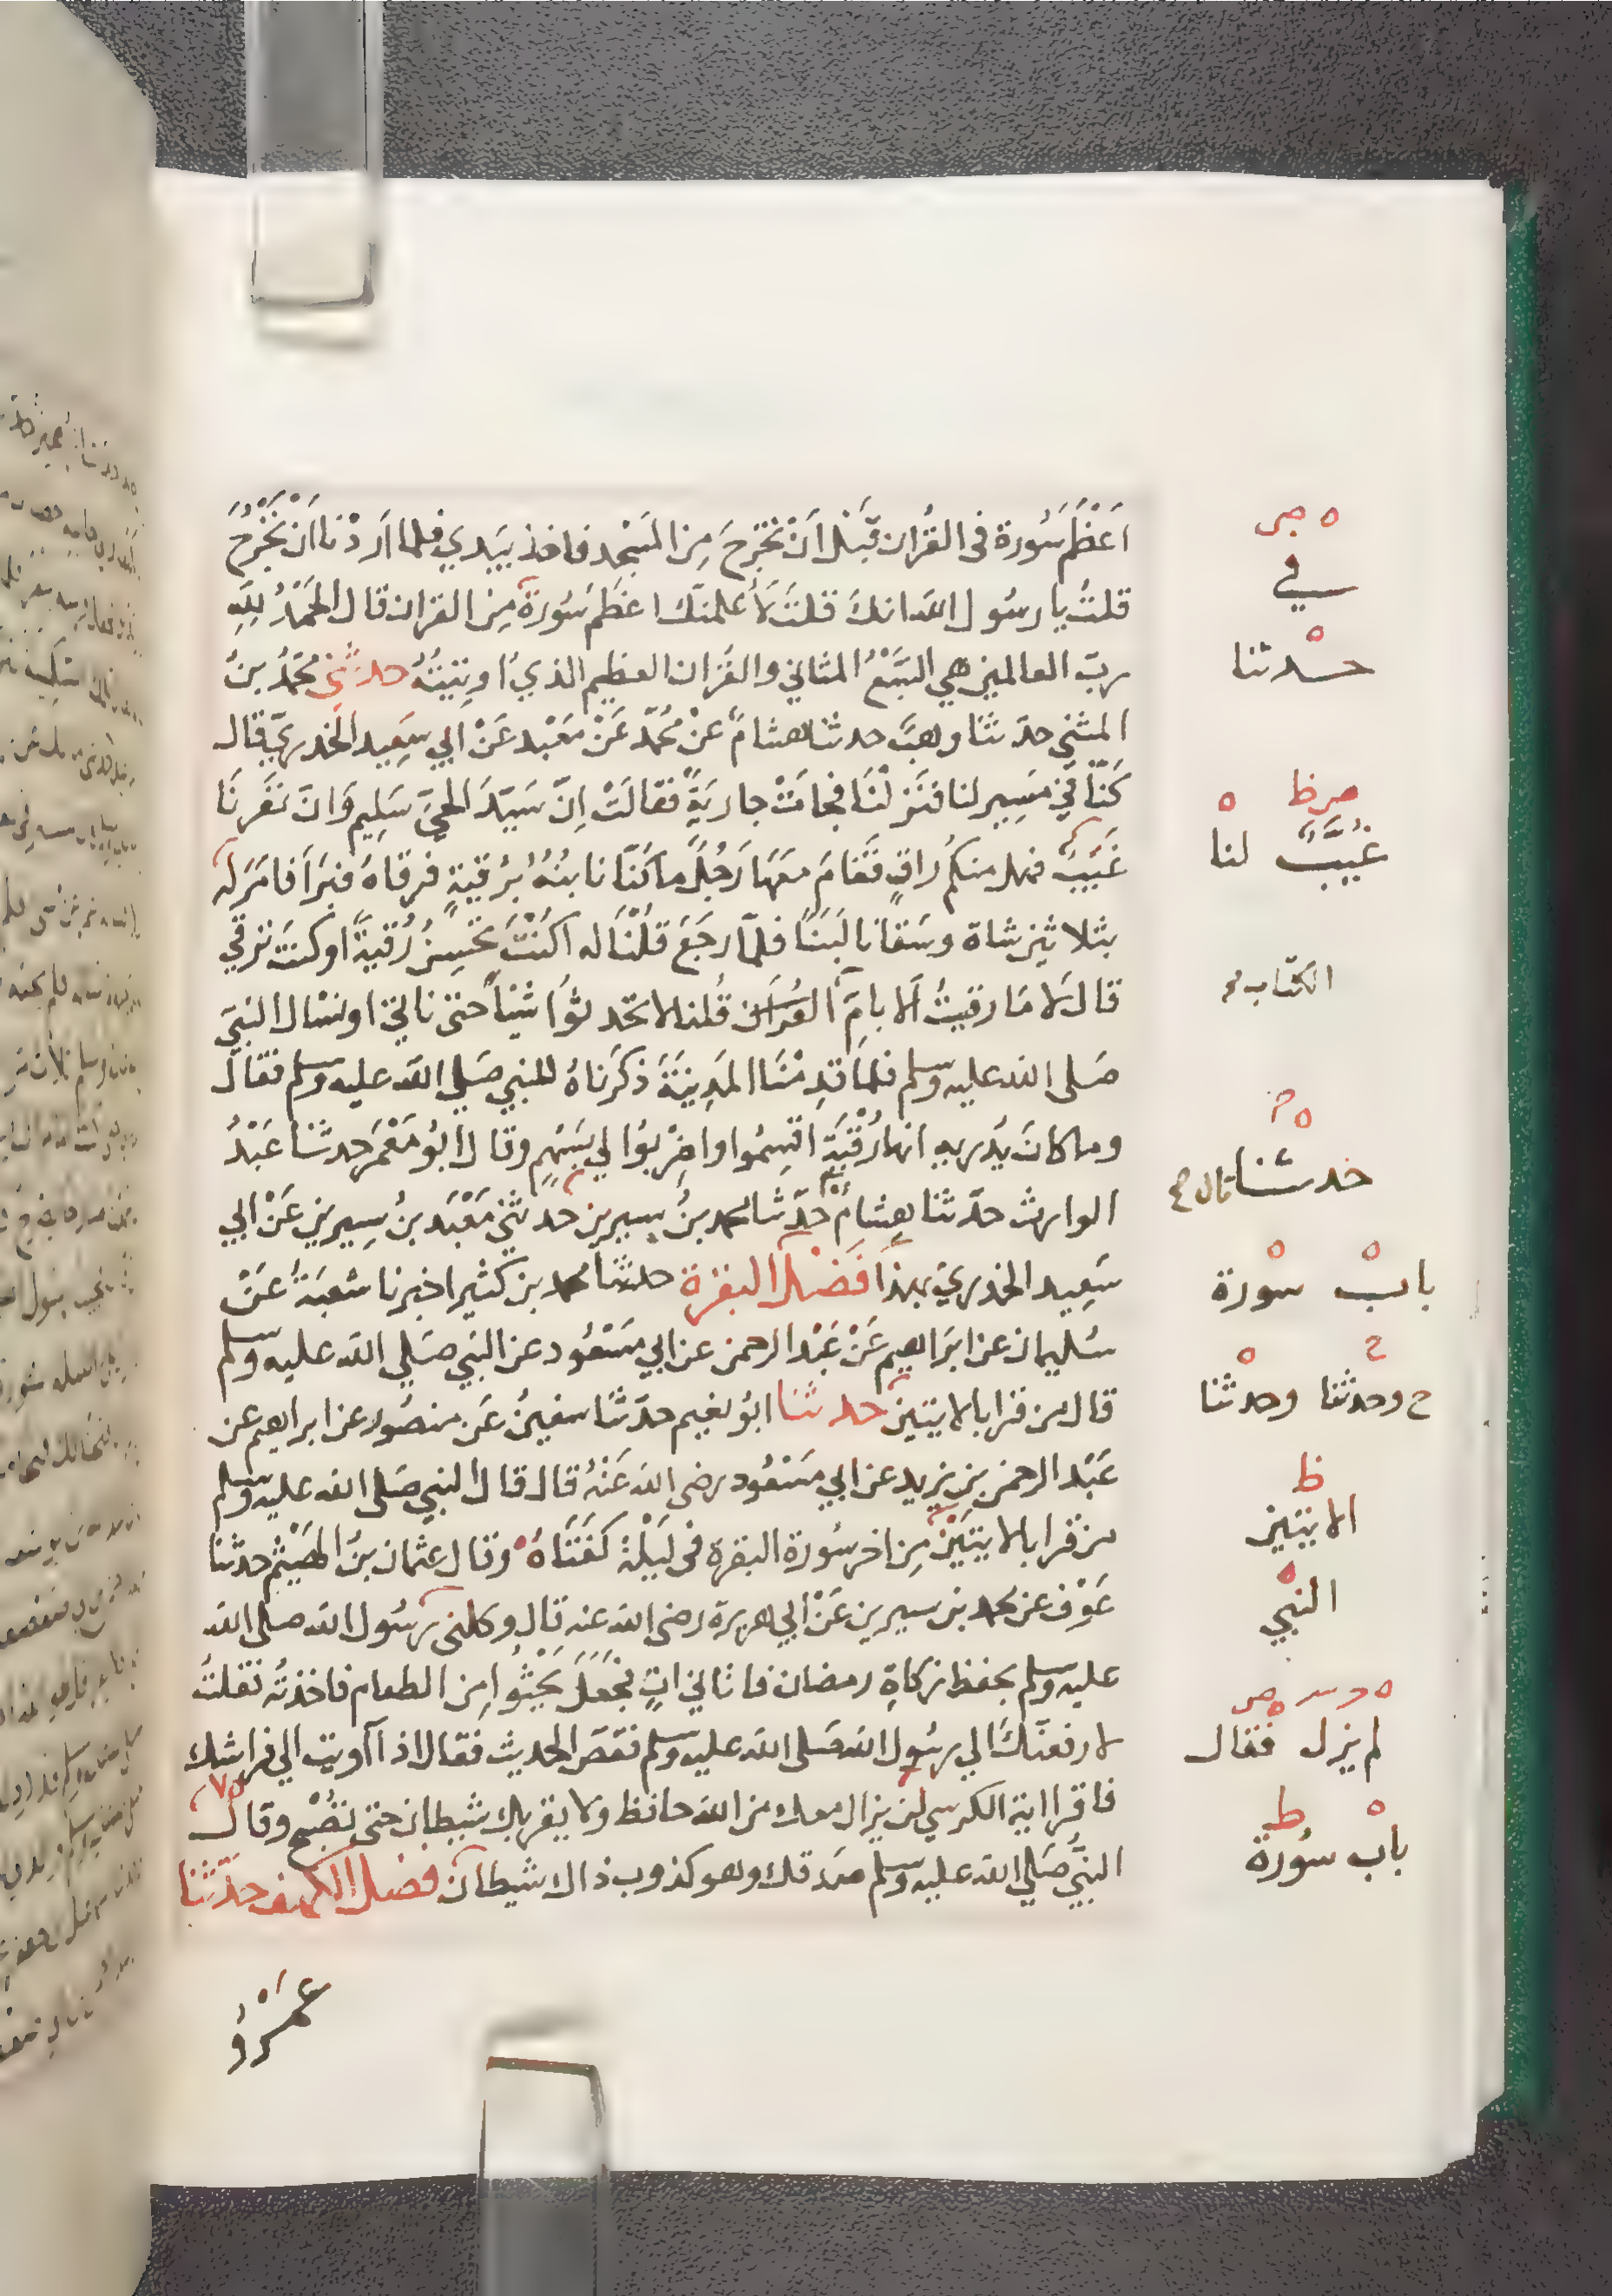 اَعْظَمَ سُورة فى القُران قَبْل اَنْ تَخْرُجَ مِن المسَجْد فاخذ بِيَدِي فلما اَرَدْنا اَنْ نَخْرُجَ
قلتُ يا رسُول الله انك قلتَ لَأُعلمنّك اعظَم سُورةٍ مِن القران قال الحَمْدُ لِلّهِ
ربّ العالمين هي السَّبْعُ المثاني والقُران العظيم الذي اوتِيتُهُ حدثنى مُحَمّدُ بنُ
المثنى حدّثنا وهبٌ حدثنا هشامٌ عنْ مُحَمّد عَنْ مَعْبد عَنْ ابي سَعِيد الخدريّ قال
كنّا فِي مَسِيرٍ لنا فنَزلْنَا فجاءَتْ جارِيَةٌ فقالَتْ اِنّ سَيّدَ الحيّ سَلِيم وَانّ نَفَرنَا
غَيَبٌ فهل منكم راقٍ فقَامَ معَهَا رَجُلٌ ما كنّا نابنُهُ بِرُقيةٍ فرقاهُ فبَرَأَ فامَرَ له
بثلاثين شاة وسَقانا لَبَنًا فلمّا رجَعَ قلْنَا له اكنْتَ تحسِنُ رُقيةً او كنتَ ترقي
قال لَا مَا رقيتُ الا بامّ القُرآن قُلنا لا تحدثوُا شَيْئًا حتى ناتي او نسْال النبيّ
صَلى الله عليه وسلم فلما قدِمْنَا المَدِينَةَ ذكرناهُ للنبي صَلي الله عليه وسلم فقال
وما كانَ يُدريهِ انها رُقْيَة اقسِمُوا واضرِبوُا لي بسَهْمٍ وقال ابُو مَعْمَر حدثنا عَبْدُ
الوارث حدّثنا هشام حدّثنا محمد بنُ سِيرين حدثني مَعْبَد بنُ سِيرين عَنْ ابي
سَعِيد الخدريّ بهذا فَضْل البقرة حدثنا محمد بن كثير اخبرنا شعبَةُ عَنْ
سُليمان عن ابرَاهيم عَنْ عَبْد الرحمن عن ابي مسَعُود عن النبي صَلي الله عليه وسلم
قال من قرا بالايتين حدثنا ابوُ نعيم حدّثنا سفينُ عَن منصُور عن ابراهيم عن
عَبْد الرحمن بن يزيد عن ابي مَسْعُود رضى الله عَنْهُ قال قال النبي صَلى الله عليه وسلم
من قرا بالايتَيْن مِن اخر سُورة البقرة فى لَيْلَة كفَتَاهُ وقال عثمان بنُ الهَيْثَم حدثنا
عَوْف عن محمد بن سيرين عَنْ ابي هريرة رضى الله عنه قال وكلنى رسُول الله صلى الله
عليه وسلم بحفظ زكاةِ رمضان فاتاني اتٍ فجَعَلَ يَحْثُوا مِن الطعام فاخذتُه فقلتُ
لارفعنّك الي رسُول الله صَلى الله عليه وسلم فقصّ الحديث فقال اذا آاويت الي فراشك
فاقرا اية الكرسي لن يزال معك من الله حافظ ولا يقربك شيطان حتى تصُبْح وقال
النبيُّ صَلي الله عليه وسلم صَدقك وهو كذوب ذاك شيطان فضل الكهف حدّثنا
عَمْرُو
ه ص
في
ه
حدثنا
ص ظ ه
غُيَّبٌ لنا
الكتاب
ه
حدثنا قال ح
ه ه
بابْ سورة
ح ه
ح وحدثنا وحدثنا
ظ
الايتين
ه
النبي
ه ص
لم يزل فقال
ه ط
بابْ سُورة